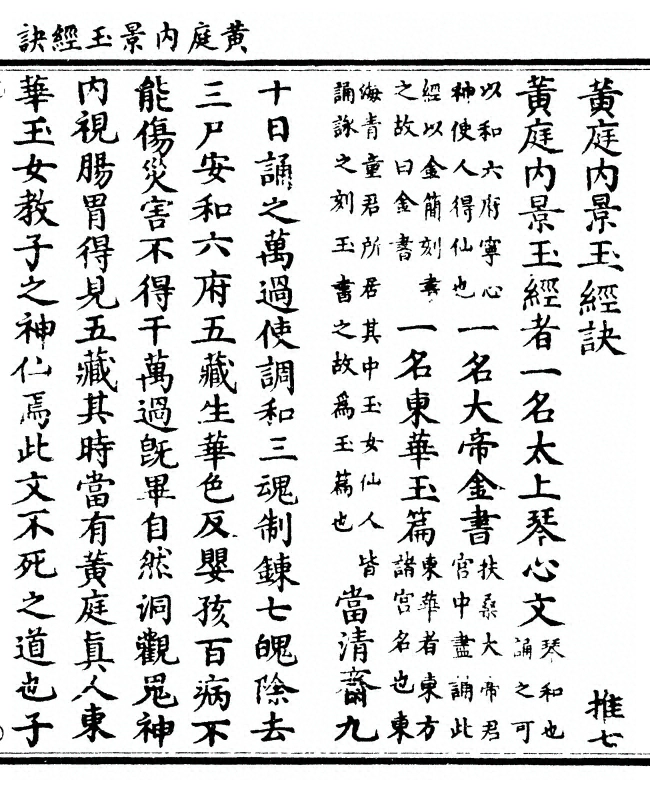 黃庭內景玉經訣
黃庭內景玉經訣 推七
黃庭內景玉經者一名太上琴心文琴和也誦之可
以和六府寧心神使人得仙也一名大帝金書扶桑大帝君宮中盡誦此
經以金簡刻書之故曰金書一名東華玉篇東華者東方諸宮名也東
海青童君所居其中玉女仙人皆誦詠之刻玉書之故爲玉篇也當清齋九
十日誦之萬過使調和三魂制鍊七魄除去
三尸安和六府五藏生華色反嬰孩百病不
能傷災害不得干萬過旣畢自然洞觀鬼神
內視腸胃得見五藏其時當有黃庭眞人東
華玉女教子之神仙焉此文不死之道也子